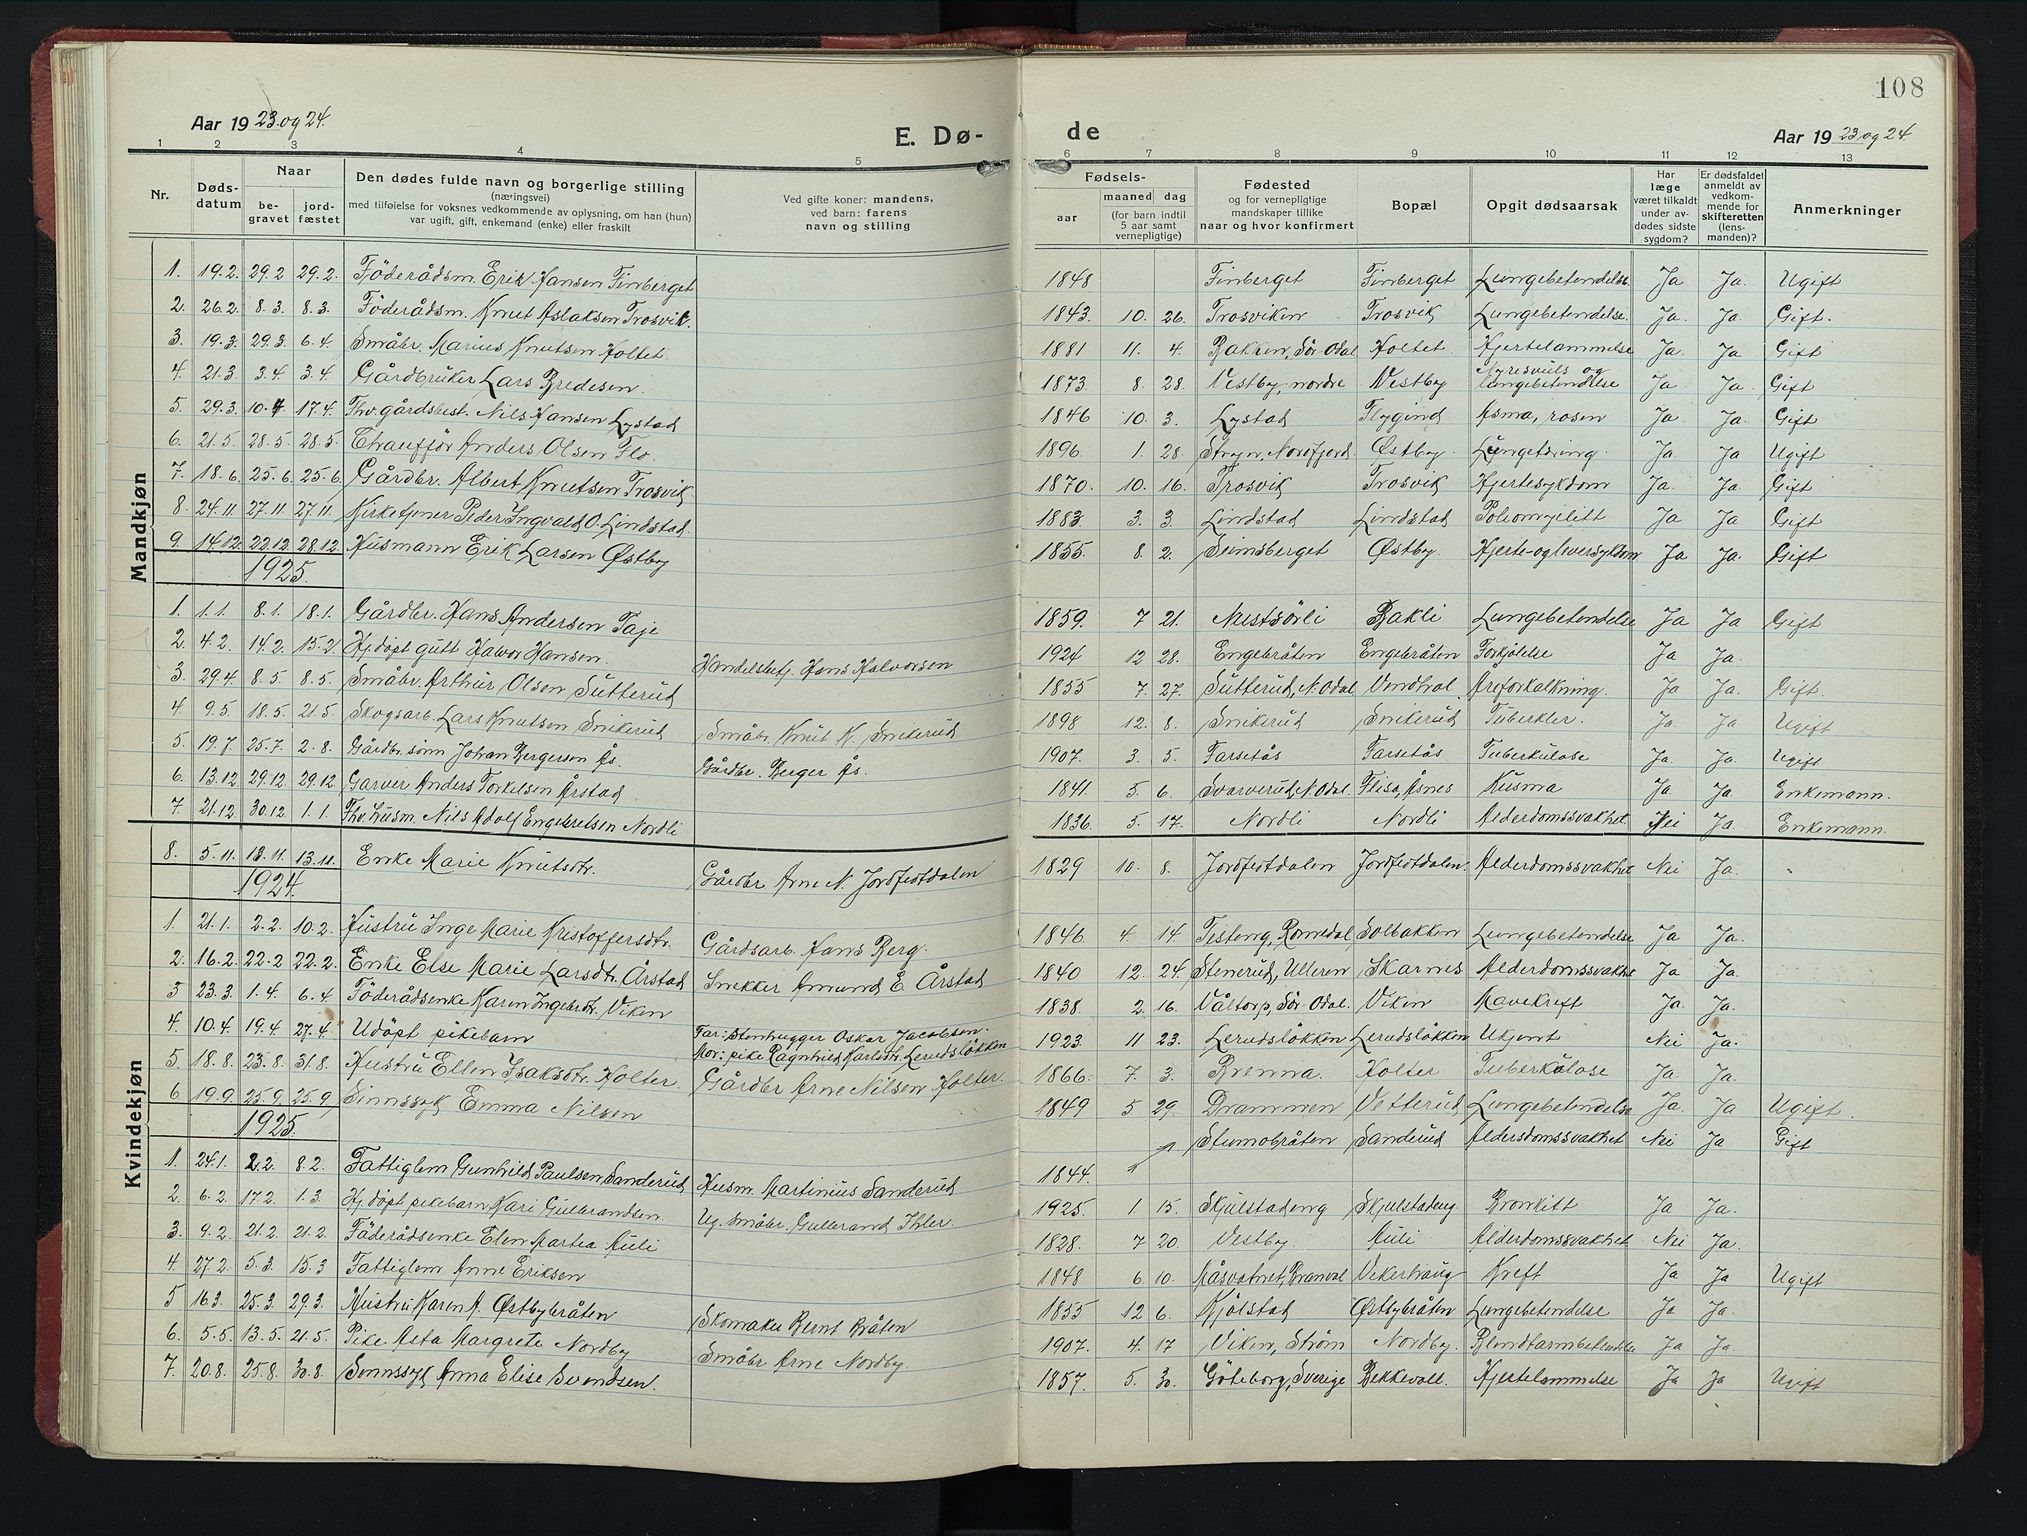 108
Aar 1923 og 24.
E. Dø-
de
Aar 1923 og 24.
1 2 3 4 5 6 7 8 9 10 11 12 13
Nr.
Døds-datum
Naar
be-gravet
jord-fæstet
Den dødes fulde navn og borgerlige stilling
(næringsvei)
med tilføielse for voksnes vedkommende av oplysning, om han (hun)
var ugift, gift, enkemand (enke) eller fraskilt
Ved gifte koner: mandens,
ved barn: farens
navn og stilling
Fødsels-
aar
maaned
dag
(for barn indtil
5 aar samt
vernepligtige)
Fødested
og for vernepligtige
mandskaper tillike
naar og hvor konfirmert
Bopæl
Opgit dødsaarsak
Har
læge
været tilkaldt
under av-
dødes sidste
sygdom?
Er dødsfaldet
anmeldt av
vedkom-
mende for
skifteretten
(lens-
manden)?
Anmerkninger
Mandkjøn
1. 19.2. 29.2 29.2. Föderådsm. Erik Hansen Finberget 1848 Finberget Finberget Lungebetendelse Ja Ja. Ugift
2. 26.2. 8.3. 8.3. Föderådsm. Knut Aslaksen Trosvik. 1843. 10. 26. Trosviken Trosvik Lungebetendelse. Ja. Ja. Gift.
3. 19.3. 29.3 6.4. Småbr. Marius Knutsen Holtet. 1881 11. 4. Bakken, Sör Odal Holtet Hjertelammelse Ja. Ja Gift
4. 21.3. 3.4. 3.4. Gårdbruker Lars Bredesen 1873. 8. 28. Vestby, nordre Vestby og lungebetendlse Ja. Ja. Gift
5. 29.3. 10.4 17.4. Fhv. gårdsbest. Nils Hansen Lystad 1846 10. 3. Lystad Flygind Asma, rosen Ja. Ja. Gift
6. 21.5. 28.5. 28.5. Chaufför Anders Olsen Flo. 1896. 1. 28. Stryn, Nordfjord. Østby. Ja Ja. Ugift
7. 18.6. 25.6. 25.6. Gårdbr. Albert Knutsen Trosvik 1870. 10. 16. Trosvik Trosvik Hjertesykdom Ja. Ja. Gift
8. 24.11 27.11 27.11. Kirketjener Peder Ingvald O. Lindstad. 1883. 3. 3. Lindstad Lindstad Poliomyelitt Ja Ja Gift
9. 14.12. 22.12. 28.12. Husmann Erik Larsen Østby 1855. 8. 2. Seimsberget Østby. Hjerte- og leversykdom Ja Ja. Gift
1925.
1. 1.1. 8.1. 18.1. Gårdbr. Hans Andersen Taje 1859. 7 21. Nestsörli Bakli Lungebetendelse Ja Ja Gift
2. 4.2. 14.2. 15.2 Hj.döpt gutt Halvor Hansen. Handelsbetj. Hans Halvorsen 1924 12 28. Engebråten Engebråten Forkjölelse Ja Ja.
3. 29.4. 8.5. 8.5. Småbr. Arthur Olsen Sutterud 1855 7. 27. Sutterud, N. Odal Åreforkalkning. Ja Ja. Gift.
4. 9.5. 18.5. 21.5. Skogsarb. Lars Knutsen Snikerud Småbr. Knut K. Snikerud 1898 12. 8. Snikerud Snikerud Tuberkler. Ja. Ja Ugift
5. 19.7. 25.7. 2.8. Gårdbr. sönn Johan Bergersen Ås. Gårdbr. Berger Ås. 1907. 3. 5. Farsetås Farsetås Tuberkulose Ja Ja. Ugift
6. 13.12. 29.12. 29.12. Garver Anders Torkelsen Årstad 1841. 5. 6. Svarverud, N. Odal. Flisa, Åsnes Kusma Ja Ja. Enkemann.
7. 21.12. 30.12. 1.1. Fhv. husm. Nils Adolf Engebretsen Nordli 1836. 5. 17. Nordli Nordli Alderdomssvakhet Nei Ja. Enkemann.
Kvindekjøn
8. 5.11. 13.11. 13.11. Enke Marie Knutsdtr. Gårdbr. Arne N. Jordfestdalen 1829 10. 8. Jordfestdalen Jordfestdalen. Alderdomssvakhet Nei Ja.
1924.
1. 21.1. 2.2. 10.2. Hustru Inge Marie Kristoffersdtr. Gårdsarb. Hans Berg. 1846. 4. 14. Testeng, Romedal Solbakken Lungebetendelse Ja Ja.
2. 16.2. 22.2 22.2. Enke Else Marie Larsdtr. Årstad Snekker Amund E. Årstad 1840 12. 24. Stenerud, Ulleren Skarnes Alderdomssvakhet Ja Ja.
3 23.3. 1.4. 6.4. Föderådsenke Karen Ingebrdtr. Viken 1838. 2. 16. Våltorp, Sör Odal. Viken Mavekreft Ja. Ja.
4. 10.4. 19.4 27.4. Udöpt pikebarn Far: Stenhugger Oskar Jacobsen.
Mor: pike Ragnhild Karlsdtr. Lerudslökken 1923 11 23. Lerudslökken Lerudslökken Ukjent Nei Ja.
5. 18.8. 23.8. 31.8. Hustru Ellen Isaksdtr. Holter. Gårdbr. Arne Nilsen Holter. 1866. 7. 3. Brenna. Holter Tuberkulose Ja. Ja.
6. 19.9. 25.9. 25.9. Sinnssyk Emma Nilsen 1849 5 29. Drammen Vetterud Lungebetendelse Ja. Ja Ugift.
1925.
Stumobråten Sanderud Aldersdomssvakhet Nei Ja Gift
1. 24.1. 2.2. 8.2. Fattiglem Gunhild Paulsen Sanderud Husm. Martinius Sanderud 1844.
2. 6.2. 17.2. 1.3. Hj.döpt pikebarn Kari Gulbrandsen. Ug. småbr. Gulbrand Ihler. 1925. 1. 15. Skjulstadeng Skjulstadeng Bronkitt Ja Ja.
3. 9.2. 21.2. 21.2. Föderådsenke Elen Martea Auli 1828. 7 20. Vestby. Auli Alderdomssvakhet. Nei Ja.
4. 27.2. 5.3. 15.3 Fattiglem Anne Eriksen 1848 6 10. Vekerhaug Kreft Ja Ja Ugift
5 16.3. 25.3. 29.3. Hustru Karen A. Østbybråten Skomaker Bernt Bråten 1855 12 6. Kjölstad Østbybråten Lungebetendelse Ja Ja.
6. 5.5. 13.5. 21.5. Pike Alfa Margrete Nordby Småbr. Arne Nordby. 1907. 4. 17 Viken, Ström Nordby. Blindtarmbetendelse Ja Ja.
7. 20.8. 25.8. 30.8. Sinnssyk Anna Elise Svendsen. 1857. 5. 30. Göteborg, Sverige Bekkevoll. Hjertelammelse Ja Ja Ugift